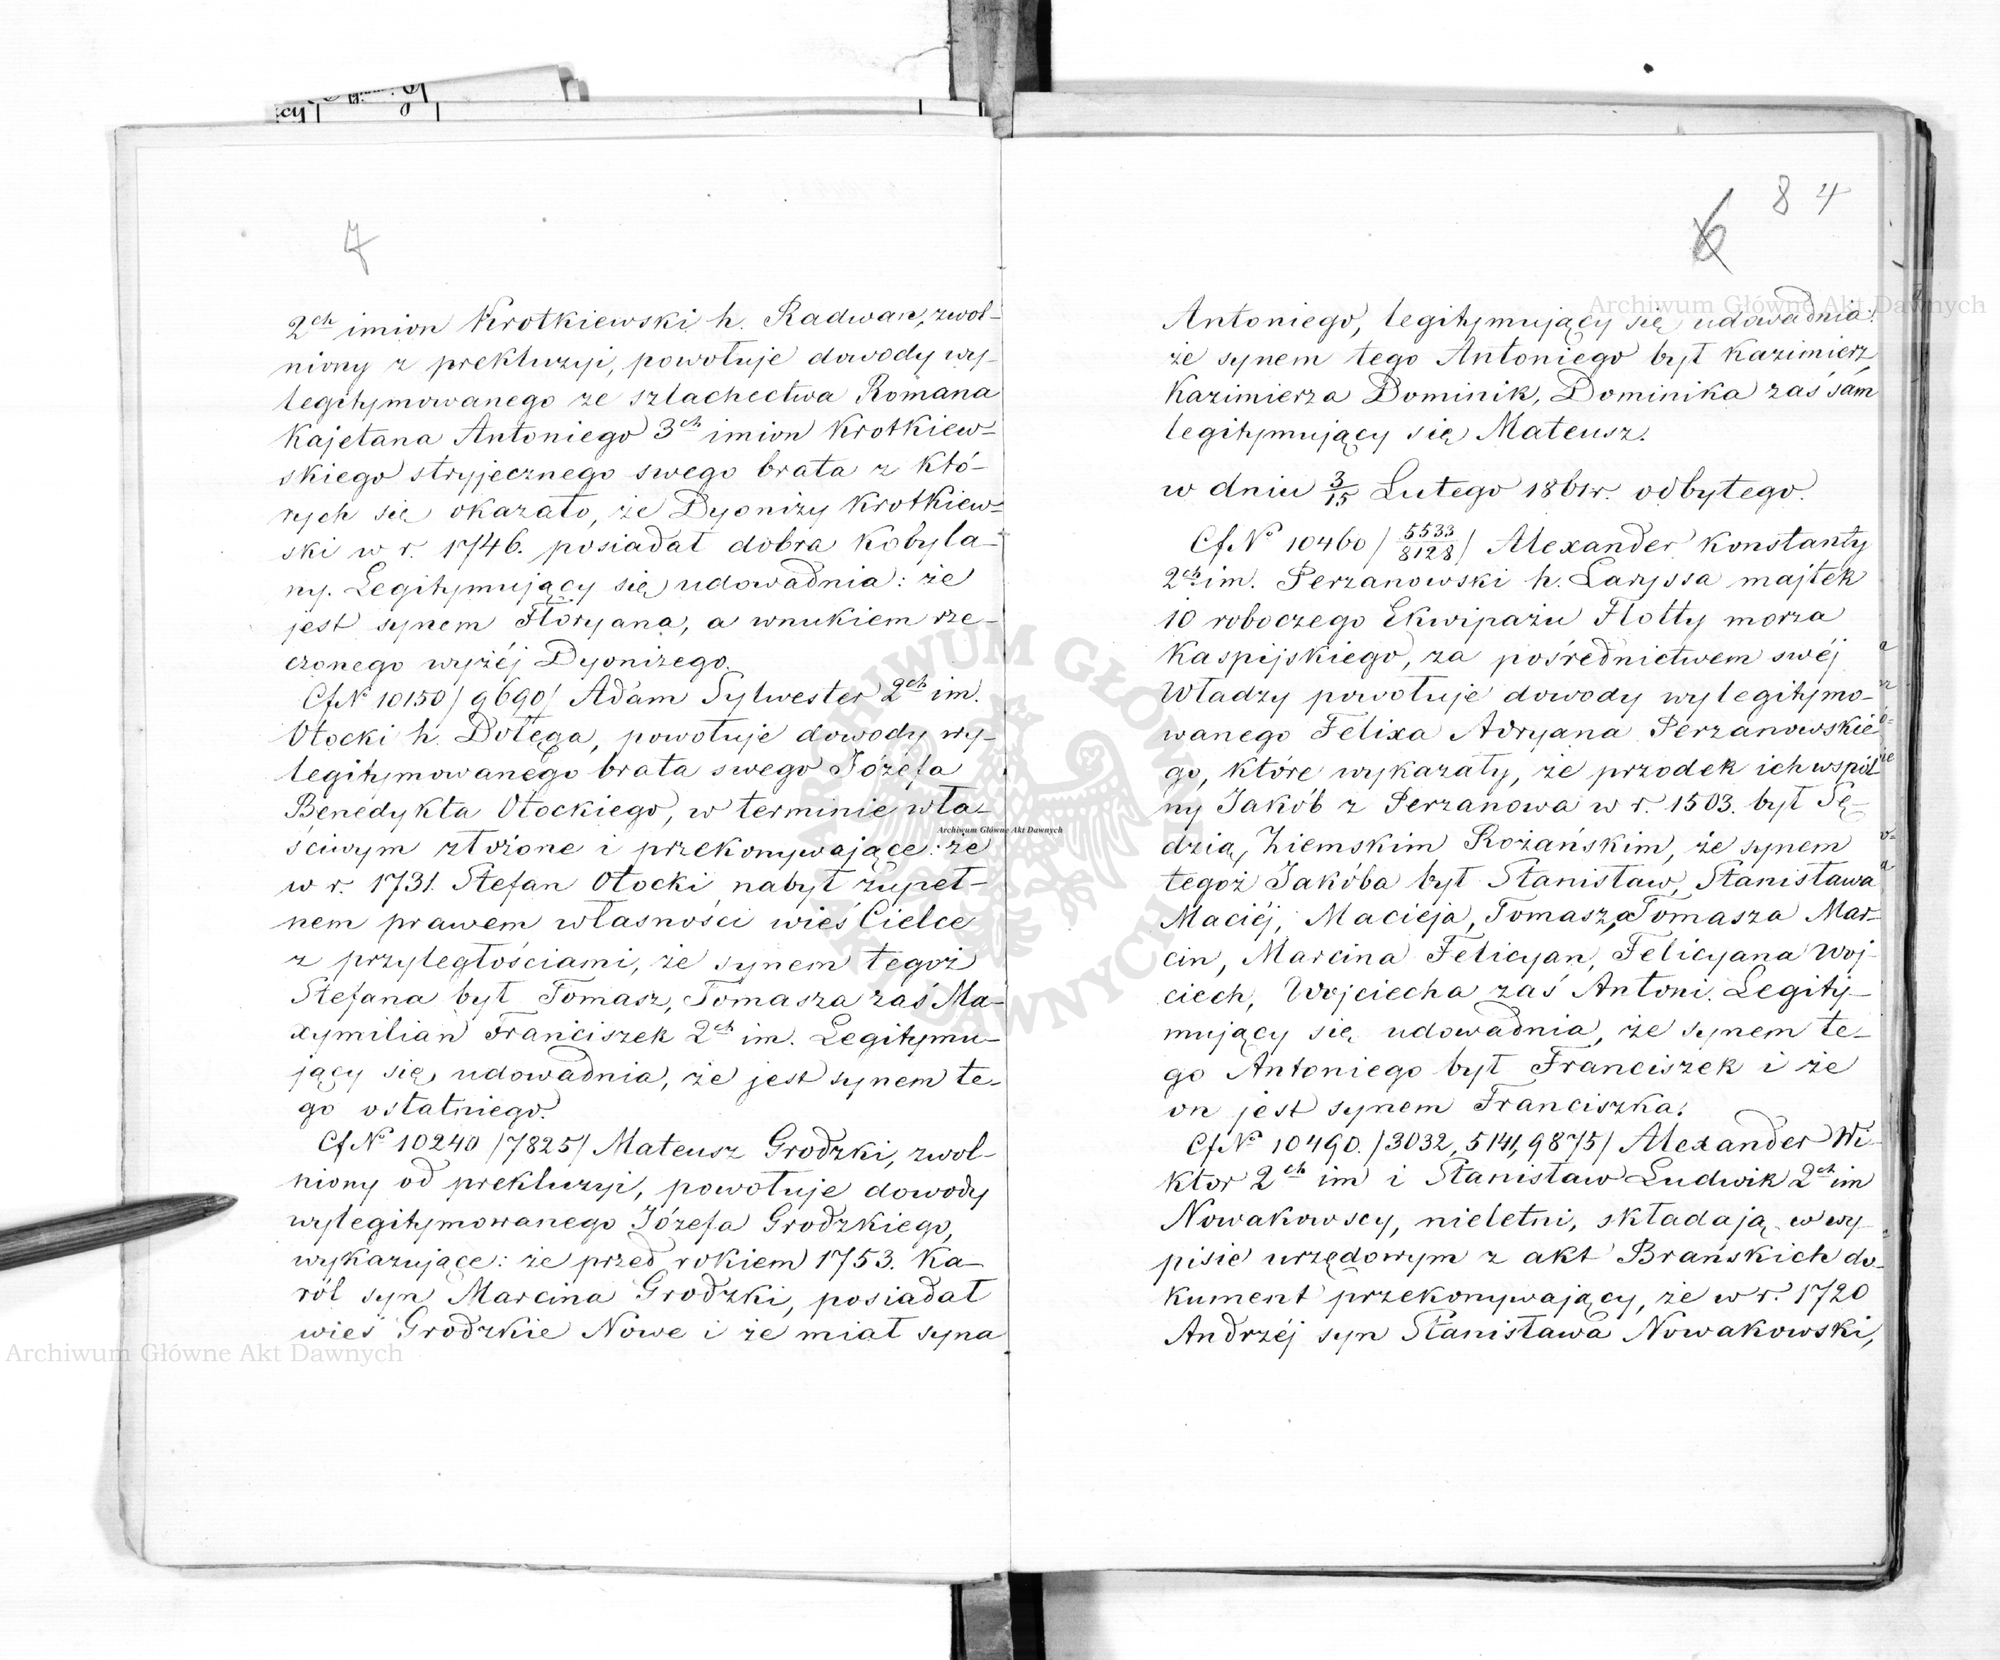 7
2ch imion Krotkiewski h. Radwan, zwol-
niony z prekluzyi, powołuje dowody wy-
legitymowanego ze szlachectwa Romana
Kajetana Antoniego 3ch imion Krotkiew-
skiego stryjecznego swego brata z któ-
rych się okazało, że Dyonizy Krotkiew-
ski w r. 1746. posiadał dobra Kobyla-
ny. Legitymujący się udowadnia: że
jest synem Floryana, a wnukiem rze-
czonego wyżéj Dyonizego.
Cf. No 10150 /9690/ Adam Sylwester 2ch im.
Otocki h. Dołęga, powołuje dowody wy-
legitymowanego brata swego Józefa
Benedykta Otockiego, w terminie wła-
ściwym złożone i przekonywające: że
w r. 1731. Stefan Otocki nabył zupeł-
nem prawem własności wieś Cielce
z przyległościami, że synem tegoż
Stefana był Tomasz, Tomasza zaś Ma-
xymilian Franciszek 2ch im. Legitymu-
jący się udowadnia, że jest synem te-
go ostatniego.
Cf No 10240 /7825/ Mateusz Grodzki, zwol-
niony od prekluzyi, powołuje dowody
wylegitymowanego Józefa Grodzkiego,
wykazujące: że przed rokiem 1753. Ka-
ról syn Marcina Grodzki, posiadał
wieś Grodzkie Nowe i że miał syna
6 84
Antoniego, legitymujący się udowadnia:
że synem tego Antoniego był Kazimierz,
Kazimierza Dominik, Dominika zaś sam
legitymujący się Mateusz.
w dniu 3/15 Lutego 1861r. odbytego.
Cf. No 10460 /5533/8128/ Alexander Konstanty
2ch im. Perzanowski h. Laryssa majtek
10 roboczego Ekwipażu Flotty morza
Kaspijskiego, za pośrednictwem swéj
Władzy powołuje dowody wylegitymo-
wanego Felixa Adryana Perzanowskie
go, które wykazały, że przodek ich wspól
ny Jakób z Perzanowa w r. 1503. był Sę-
dzią Ziemskim Rożańskim, że synem
tegoż Jakóba był Stanisław, Stanisława
Maciéj, Macieja, Tomasz, Tomasza Mar-
cin, Marcina Felicyan, Felicyana Woj-
ciech, Wojciecha zaś Antoni. Legity-
mujący się udowadnia, że synem te-
go Antoniego był Franciszek i że
on jest synem Franciszka.
Cf. No 10490. /3032, 5141, 9875/ Alexander Wi-
ktor 2ch im i Stanisław Ludwik 2ch im
Nowakowscy, nieletni, składają w wy-
pisie urzędowym z akt Brańskich do-
kument przekonywający, że w r. 1720
Andrzéj syn Stanisława Nowakowski,
Archiwum Główne Akt Dawnych
Archiwum Główne Akt Dawnych
Archiwum Główne Akt Dawnych
ARCHIWUM GŁÓWNE AKT DAWNYCH